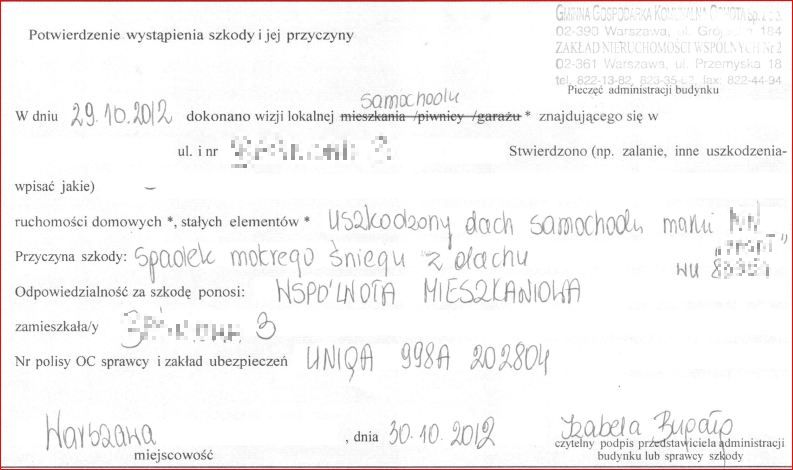 GMINNA GOSPODARKA KOMUNALNA OCHOTA sp. z o.o.
02-390 Warszawa, ul. Grójecka 184
ZAKŁAD NIERUCHOMOŚCI WSPÓLNYCH Nr 2
02-361 Warszawa, ul. Przemyska 18
tel. 822-13-82, fax: 822-44-94
Potwierdzenie wystąpienia szkody i jej przyczyny
Pieczęć administracji budynku
samochodu
W dniu 29.10.2012 dokonano wizji lokalnej mieszkania /piwnicy /garażu * znajdującego się w
ul. i nr Stwierdzono (np. zalanie, inne uszkodzenia-
wpisać jakie) –
ruchomości domowych *, stałych elementów * uszkodzony dach samochodu marki
Przyczyna szkody: spadek mokrego śniegu z dachu WU
Odpowiedzialność za szkodę ponosi: WSPÓLNOTA MIESZKANIOWA
zamieszkała/y 3
Nr polisy OC sprawcy i zakład ubezpieczeń UNIQA 998A 202804
Warszawa , dnia 30.10.2012 Izabela
miejscowość czytelny podpis przedstawiciela administracji
budynku lub sprawcy szkody